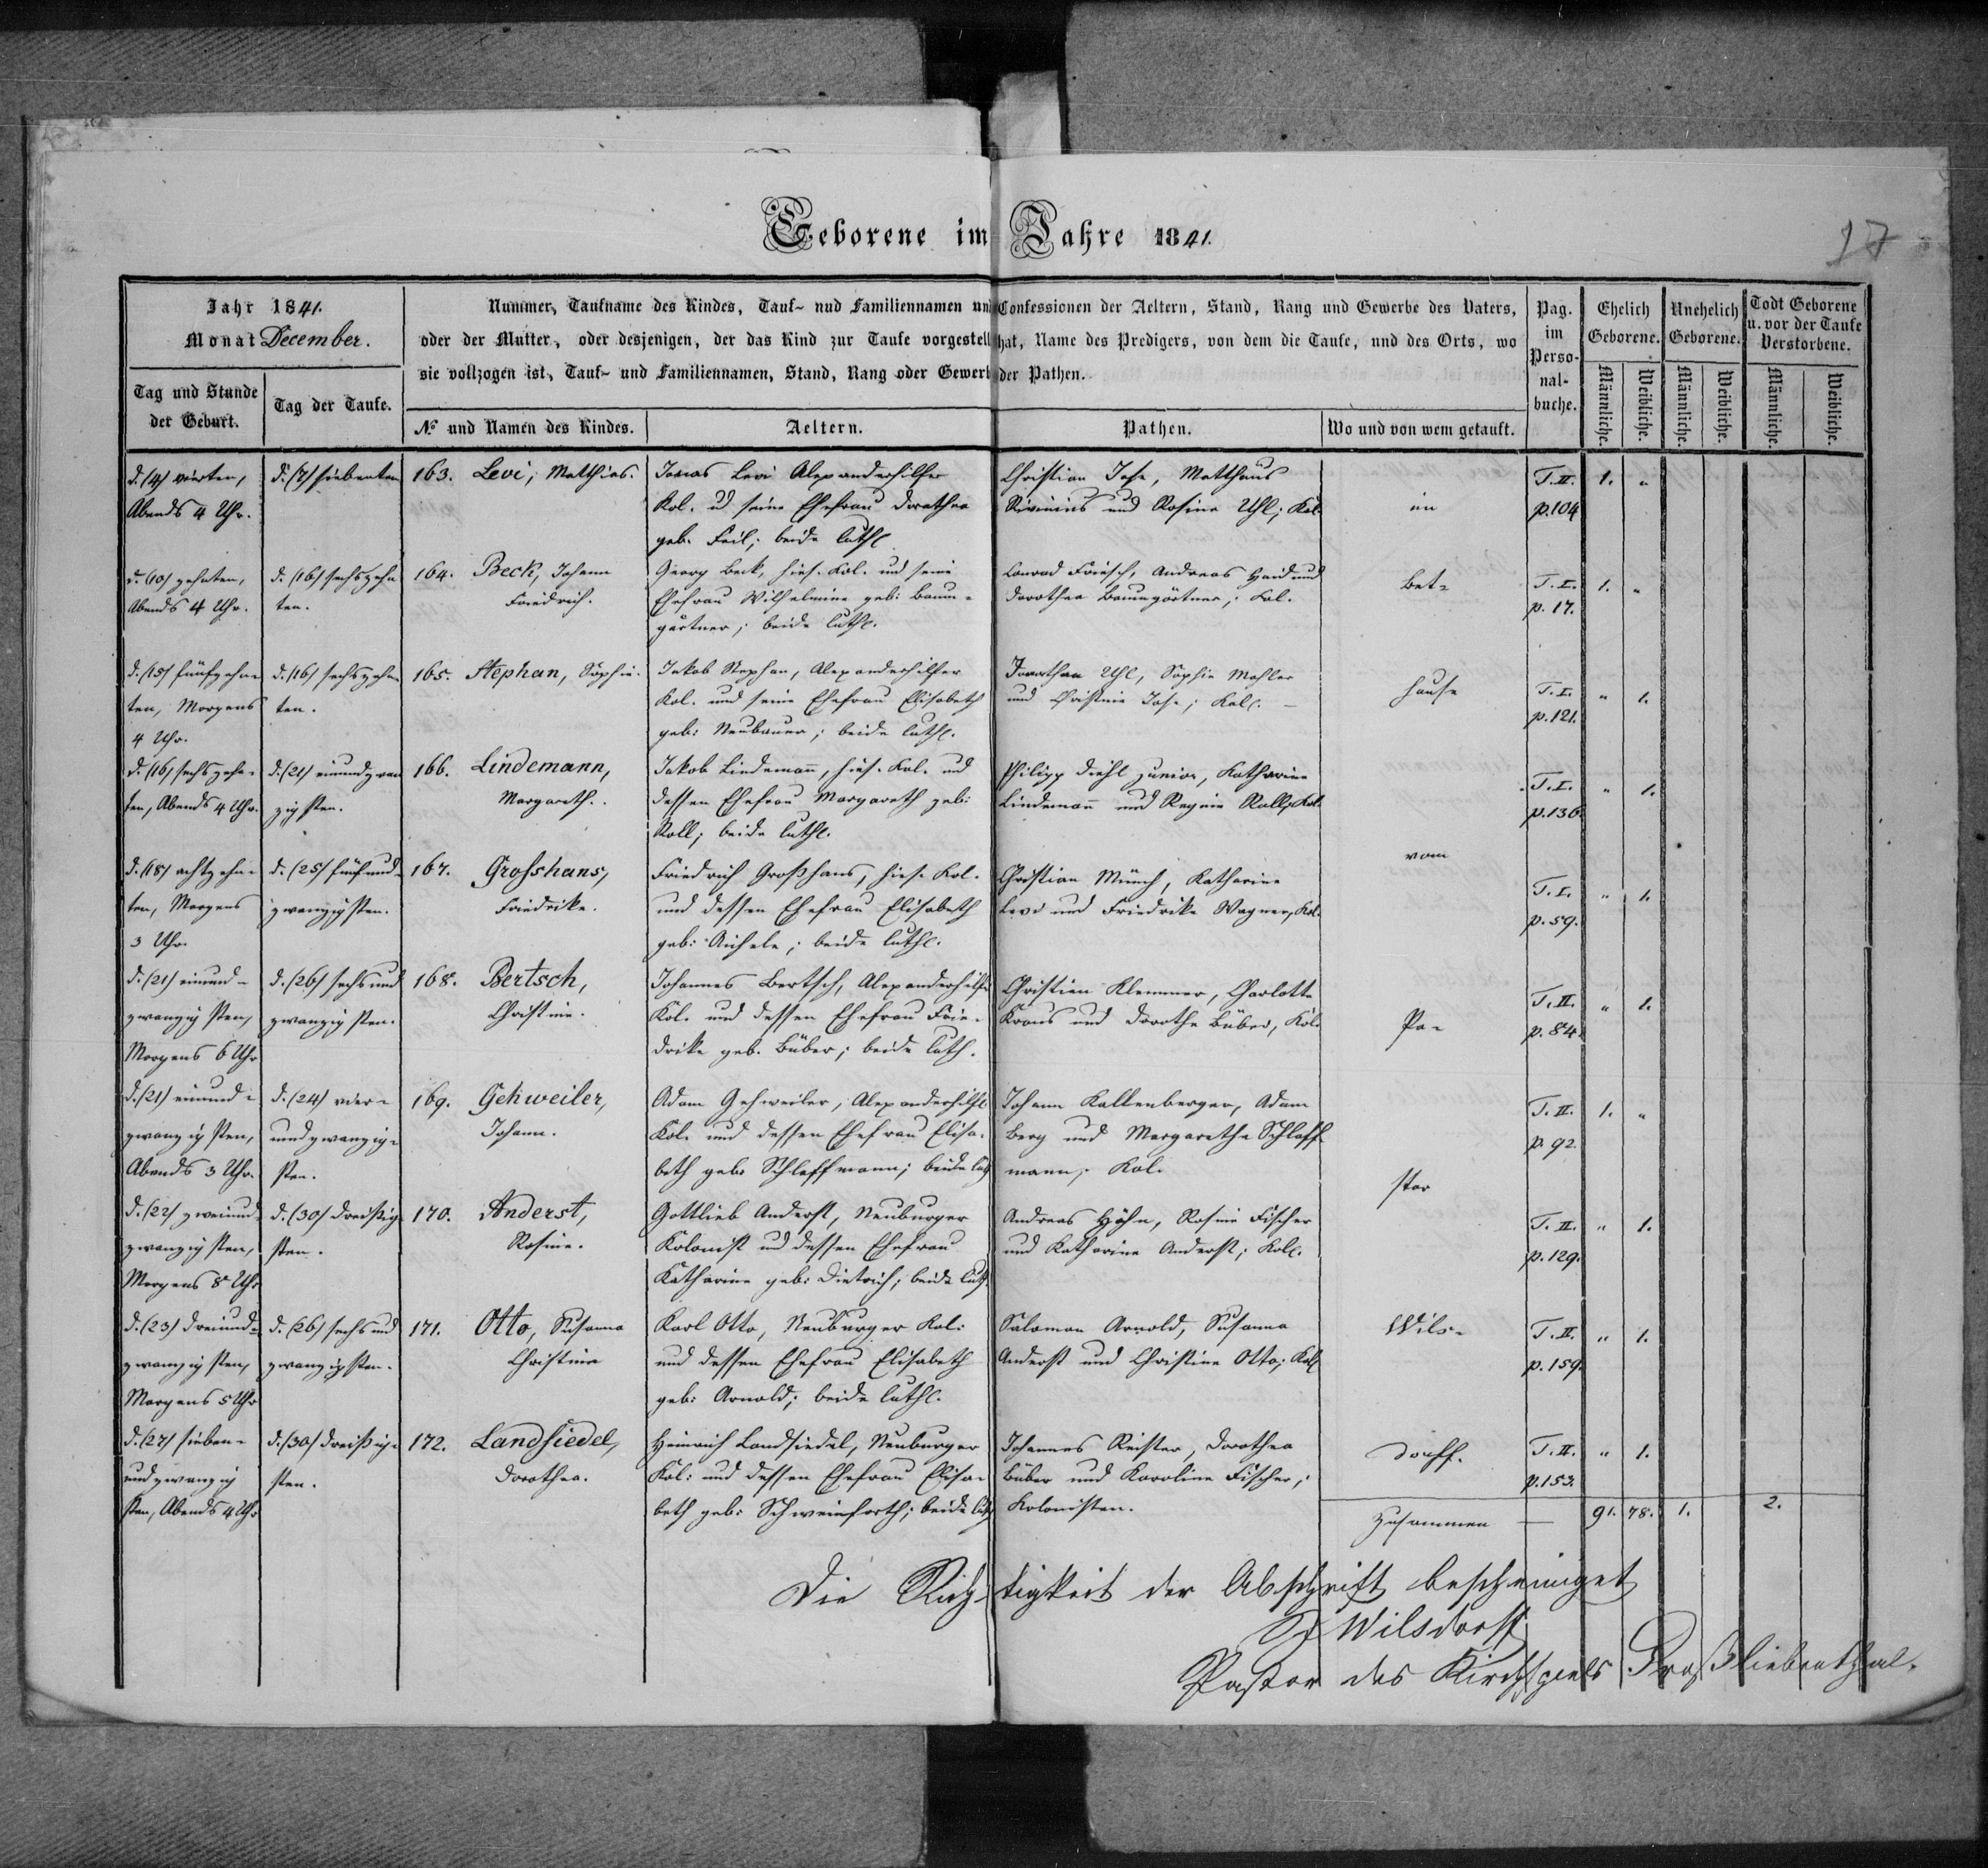 Geborene im Jahre 1841.
17
Jahr 1841.
Monat December.
Nummer, Taufname des Kindes, Tauf- und Familiennamen und Confessionen der Aeltern, Stand, Rang und Gewerbe des Vaters,
oder der Mutter, oder desjenigen, der das Kind zur Taufe vorgestellt hat, Name des Predigers, von dem die Taufe, und des Orts, wo
sie vollzogen ist, Tauf- und Familiennamen, Stand, Rang oder Gewerb der Pathen.
Pag. im Perso-nal-buche.
Ehelich Geborene.
Unehelich Geborene.
Todt Geborene u. vor der Taufe Verstorbene.
Tag und Stunde der Geburt.
Tag der Taufe.
No und Namen des Kindes.
Aeltern.
Pathen.
Wo und von wem getauft.
Männliche. Weibliche. Männliche. Weibliche. Männliche. Weibliche.
d. (4) vierten, d. (7) siebenten 163. Levi, Matthias. Levi Alexanderhilfer Christian Jose, Matthäus T. II. 1. "
Abends 4 Uhr. Kol. ud seine Ehefrau Dorothea Rivinius und Rosine Uhl; Kol. im p. 104
geb. Feil; beide luth.
d. (10) zehnten, d. (16) sechszehn 164. Beck, Johann Georg Beck, hies. Kol. und seine Conrad Friesch, Andreas Haid und Bet- T. I. 1. "
Abends 4 Uhr. ten. Friedrich. Ehefrau Wilhelmine geb: Baum- Dorothea Baumgärtner; Kol. p. 17.
gärtner; beide luth.
d. (15) fünfzehn- d. (16) sechszehn 165. Stephan, Sophie. Jakob Stephan, Alexanderhilfer Dorothea Uhl, Sophie Mohler hause T. I. " 1.
ten, Morgens ten. Kol. und seine Ehefrau Elisabeth und Christine Jose; Kol. p. 121.
4 Uhr. geb: Neubauer; beide luth.
d. (16) sechszehn- d. (21) einundzwan 166. Lindemann, Jakob Lindemann, hies. Kol. ud Philipp Diehl junior, Katharine T. I. " 1.
ten, Abends 4 Uhr. zigsten. Margareth. dessen Ehefrau Margareth geb: Lindemann und Regine Roll; Kol. p. 136.
Roll; beide luth.
d. (18) achtzehn- d. (25) fünfund- 167. Grosshans, Friedrich Großhans, hies. Kol. Christian Münch, Katharine vom T. I. " 1.
ten, Morgens zwanzigsten. Friedrike. und dessen Ehefrau Elisabeth Levi und Friedrike Wagner, Kol. p. 59.
3 Uhr. geb: Aichele; beide luth.
d. (21) einund- d. (26) sechsund 168. Bertsch, Johannes Bertsch, Alexanderhilfer Christian Klemmer, Charlotte Pa- T. II. " 1.
zwanzigsten, zwanzigsten. Christine. Kol. und dessen Ehefrau Frie- Kraus und Dorothe Büber, Kol. p. 84.
Morgens 6 Uhr drike geb. Büber; beide luth.
d. (21) einund- d. (24) vier- 169. Gehweiler, Adam Gehweiler, Alexanderhilf. Johann Kaltenberger, Adam T. II. 1. "
zwanzigsten, undzwanzig- Johann. Kol. und dessen Ehefrau Elisa- Berg und Margaretha Schlaff- p. 92.
Abends 3 Uhr. sten. beth geb. Schlaffmann; beide luth mann; Kol. stor
d. (22) zweiund d. (30) dreißig 170. Anderst, Gottlieb Anderst, Neuburger Andreas Höhn, Rosine Fischer T. II. " 1.
zwanzigsten, sten. Rosine. Kolonist ud dessen Ehefrau und Katharine Anderst; Kol. p. 129.
Morgens 8 Uhr Katharine geb: Dietrich; beide luth.
d. (23) dreiund- d. (26) sechsund 171. Otto, Susanna Karl Otto, Neuburger Kol: Salomon Arnold, Susanna Wils- T. II. " 1.
zwanzigsten, zwanzigsten. Christina und dessen Ehefrau Elisabeth Anderst und Christine Otto; Kol. p. 159.
Morgens 5 Uhr geb: Arnold; beide luth.
d. (27) sieben- d. (30) dreißig- 172. Landsiedel, Heinrich Landsiedel, Neuburger Johannes Reister, Dorothea dorff. T. II. " 1.
undzwanzig sten. Dorothea. Kol: und dessen Ehefrau Elisa- Büber und Karoline Fischer; p. 153.
sten, Abends 4 Uhr beth geb: Schweinforth; beide luth Kolonisten.
Zusammen — 91. 78. 1. 2.
Die Richtigkeit der Abschrift bescheiniget
Wilsdorff
Pastor des Kirchspiels Großliebenthal.